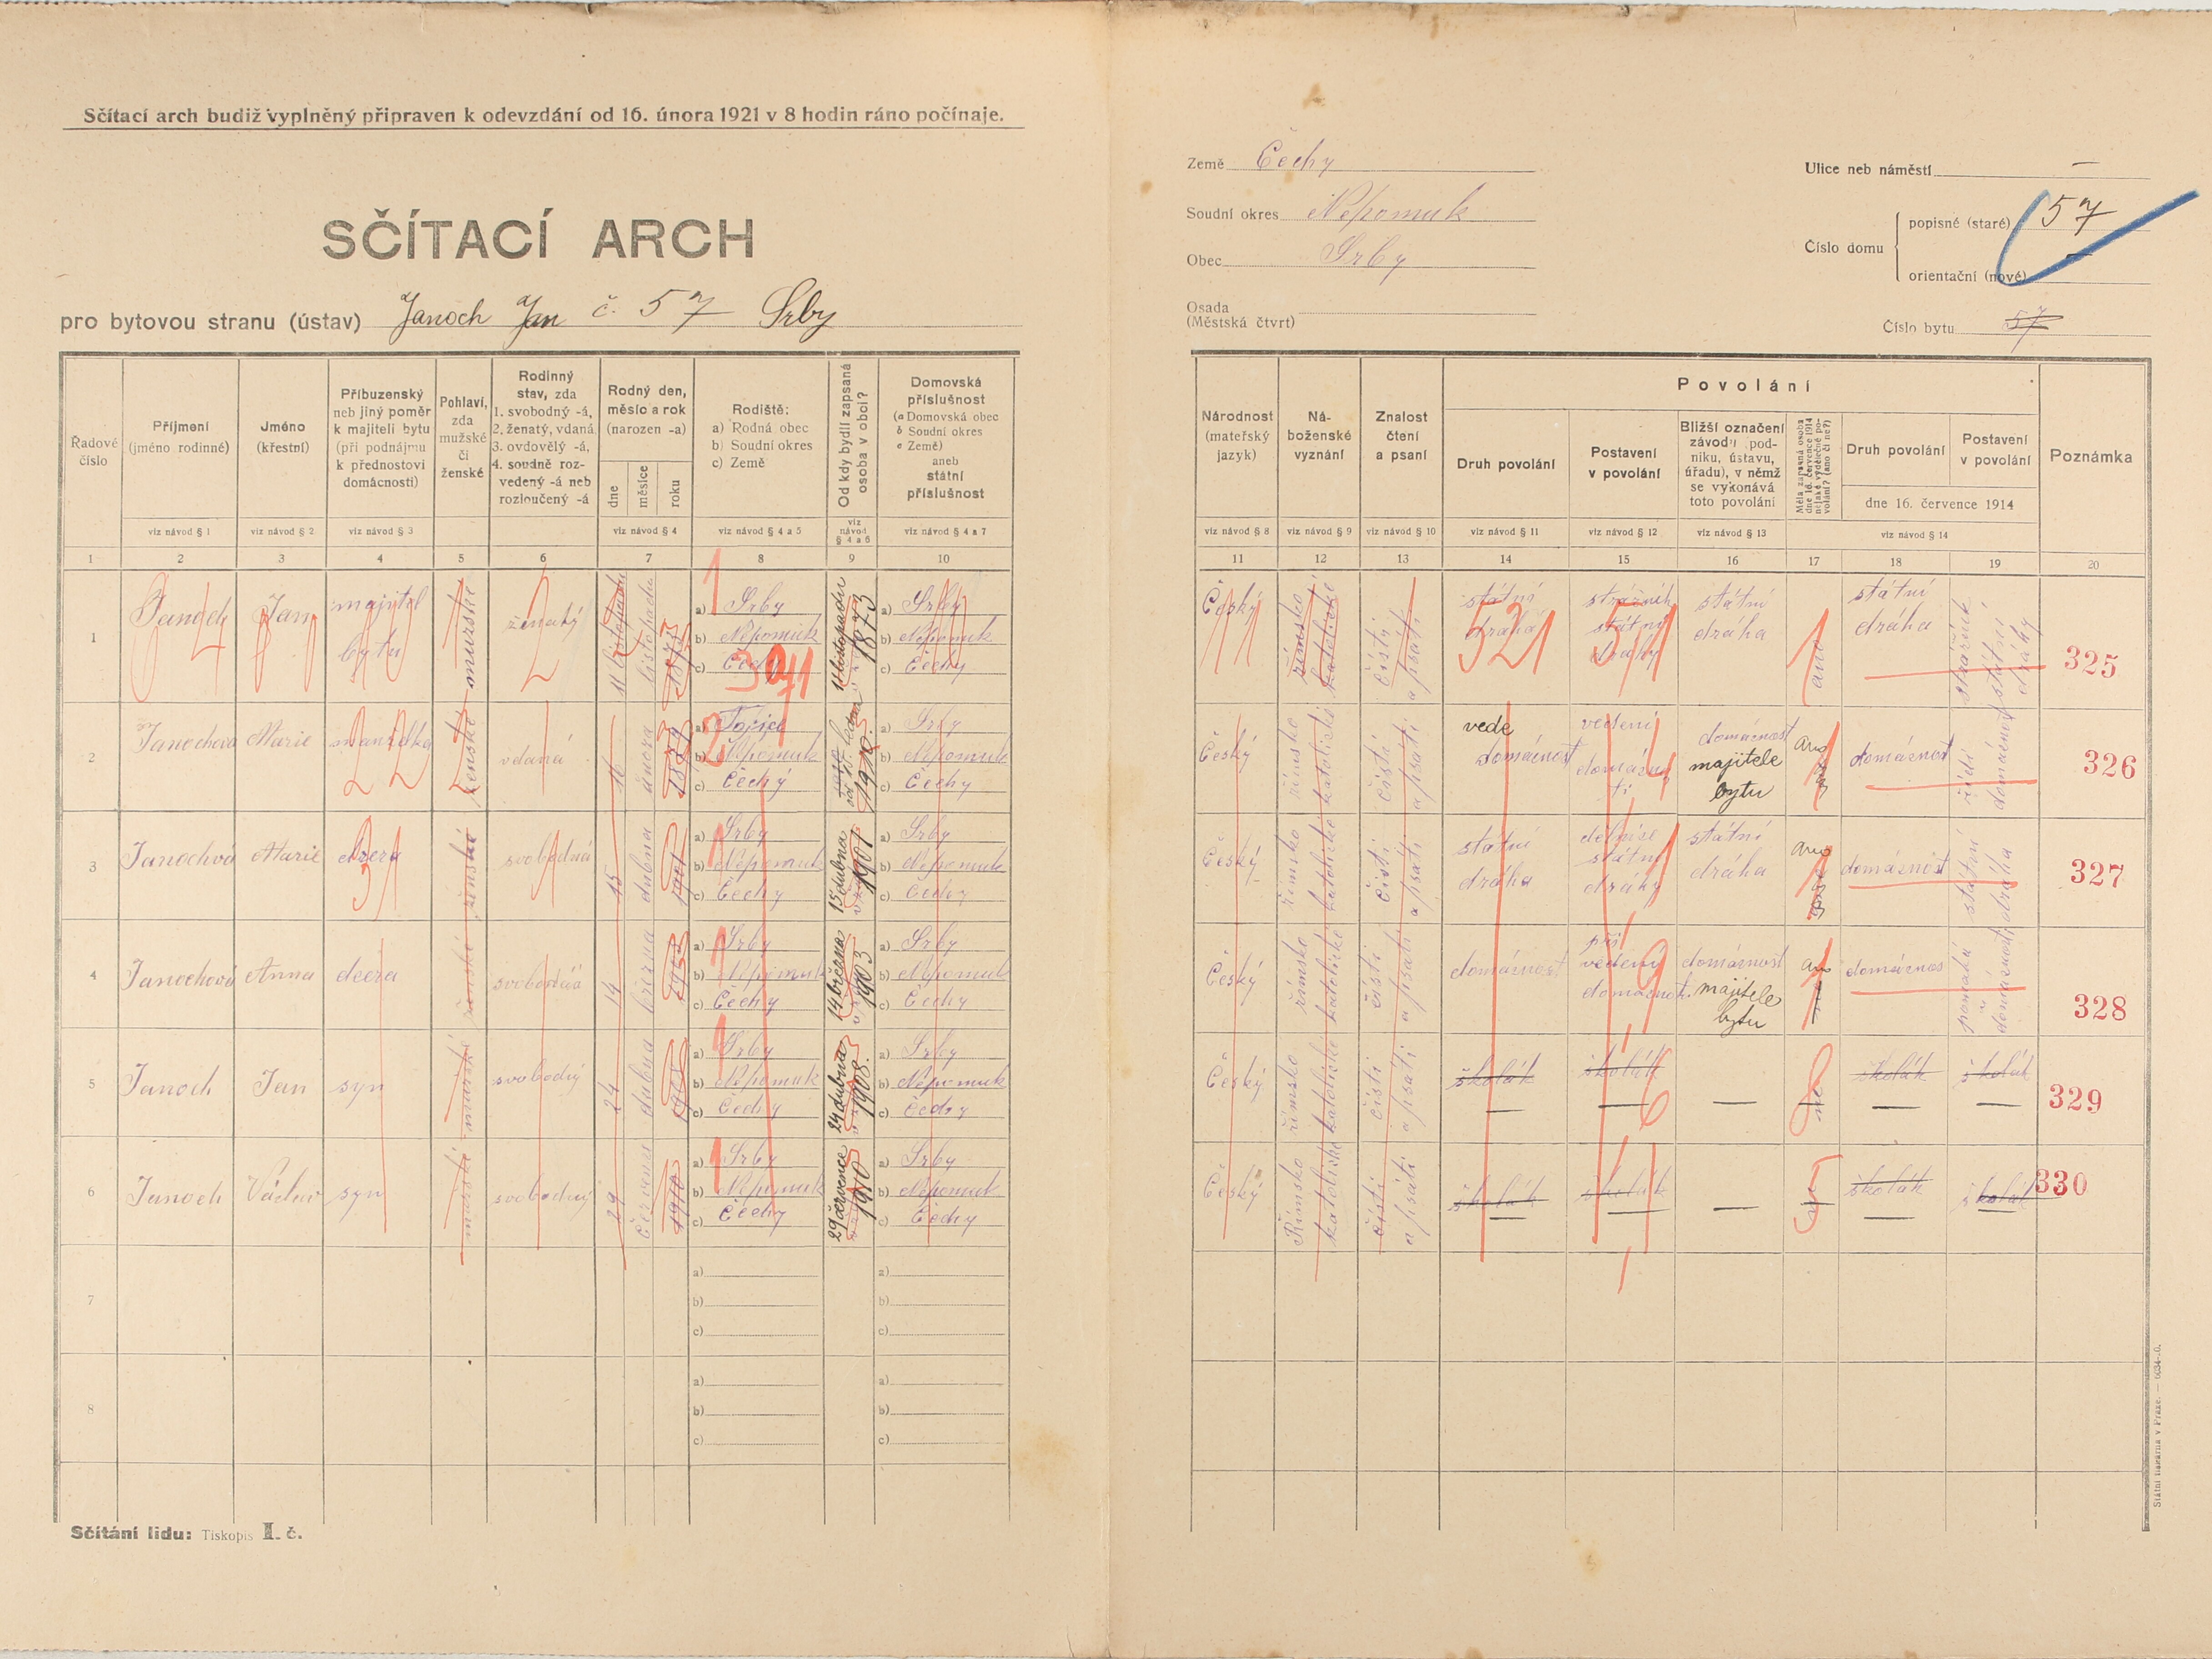 Sčítací arch budiž vyplněný připraven k odevzdání od 16. února 1921 v 8 hodin ráno počínaje.
SČÍTACÍ ARCH
pro bytovou stranu (ústav) Janoch Jan č. 57 Srby
Země Čechy
Soudní okres Nepomuk
Obec Srby
Osada
(Městská čtvrť)
Ulice neb náměstí —
Číslo domu
popisné (staré) 57
orientační (nové) —
Číslo bytu 57
Řadové číslo
Příjmení (jméno rodinné)
Jméno (křestní)
Příbuzenský neb jiný poměr k majiteli bytu (při podnájmu k přednostovi domácnosti)
Pohlaví, zda mužské či ženské
Rodinný stav, zda 1. svobodný -á, 2. ženatý, vdaná, 3. ovdovělý -á, 4. soudně rozvedený -á neb rozloučený -á
Rodný den, měsíc a rok (narozen -a)
dne měsíce roku
Rodiště: a) Rodná obec b) Soudní okres c) Země
Od kdy bydlí zapsaná osoba v obci?
Domovská příslušnost (a Domovská obec b Soudní okres c Země) aneb státní příslušnost
Národnost (mateřský jazyk)
Náboženské vyznání
Znalost čtení a psaní
Povolání
Druh povolání
Postavení v povolání
Bližší označení závodu, podniku, ústavu, úřadu), v němž se vykonává toto povolání
Měla zapsaná osoba dne 16. července 1914 nějaké výdělečné povolání? (ano či ne?)
Druh povolání
Postavení v povolání
dne 16. července 1914
Poznámka
viz návod § 1 viz návod § 2 viz návod § 3 viz návod § 4 viz návod § 4 a 5 viz návod § 4 a 6 viz návod § 4 a 7
viz návod § 8 viz návod § 9 viz návod § 10 viz návod § 11 viz návod § 12 viz návod § 13 viz návod § 14
1 2 3 4 5 6 7 8 9 10
11 12 13 14 15 16 17 18 19 20
1 Janoch Jan majitel bytu mužské ženatý 11 listopadu 1873 a) Srby b) Nepomuk c) Čechy 11 listopadu 1873 a) Srby b) Nepomuk c) Čechy
Český římsko katolické čísti a psáti státní dráha strážník státní dráhy státní dráha ano státní dráha strážník státní dráhy 325
2 Janochová Marie manželka ženské vdaná 16 února a) b) Nepomuk c) Čechy 1910 a) Srby b) Nepomuk c) Čechy
Český římsko katolické čísti a psáti vede domácnost vedení domácnosti domácnost majitele bytu Ano domácnost řídí domácnost 326
3 Janochová Marie dcera ženské svobodná 15 dubna 1901 a) Srby b) Nepomuk c) Čechy 15 dubna 1901 a) Srby b) Nepomuk c) Čechy
Český římsko katolické čísti a psáti státní dráha dělnice státní dráhy státní dráha Ano domácnost státní dráha 327
4 Janochová Anna dcera ženské svobodná 14 března 1903 a) Srby b) Nepomuk c) Čechy 14 března 1903 a) Srby b) Nepomuk c) Čechy
Český římsko katolické čísti a psáti domácnost při vedení domácnosti domácnost majitele bytu Ano domácnos pomáhá domácnosti 328
5 Janoch Jan syn mužské svobodný 24 dubna 1908 a) Srby b) Nepomuk c) Čechy 24 dubna 1908 a) Srby b) Nepomuk c) Čechy
Český římsko katolické čísti a psáti školák — školák — — ne školák — školák — 329
6 Janoch Václav syn mužské svobodný 29 července 1910 a) Srby b) Nepomuk c) Čechy 29 července 1910 a) Srby b) Nepomuk c) Čechy
Český Římsko katolické čísti a psáti školák — školák — — školák — školák — 330
7 a) b) c) a) b) c)
8 a) b) c) a) b) c)
Sčítání lidu: Tiskopis I. č.
Státní tiskárna v Praze. — 6034-0.